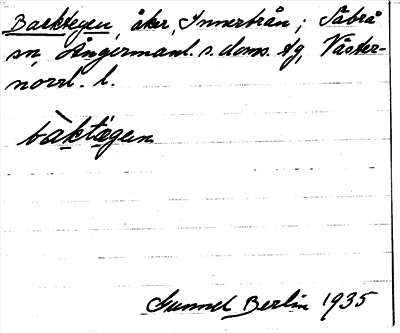 Backtegen, åker, Innerbrån; Säbrå
sn, Ångermanl. s. doms. tg, Väster-
norrl. l.
bàktégen
Gunnel Berlin 1935